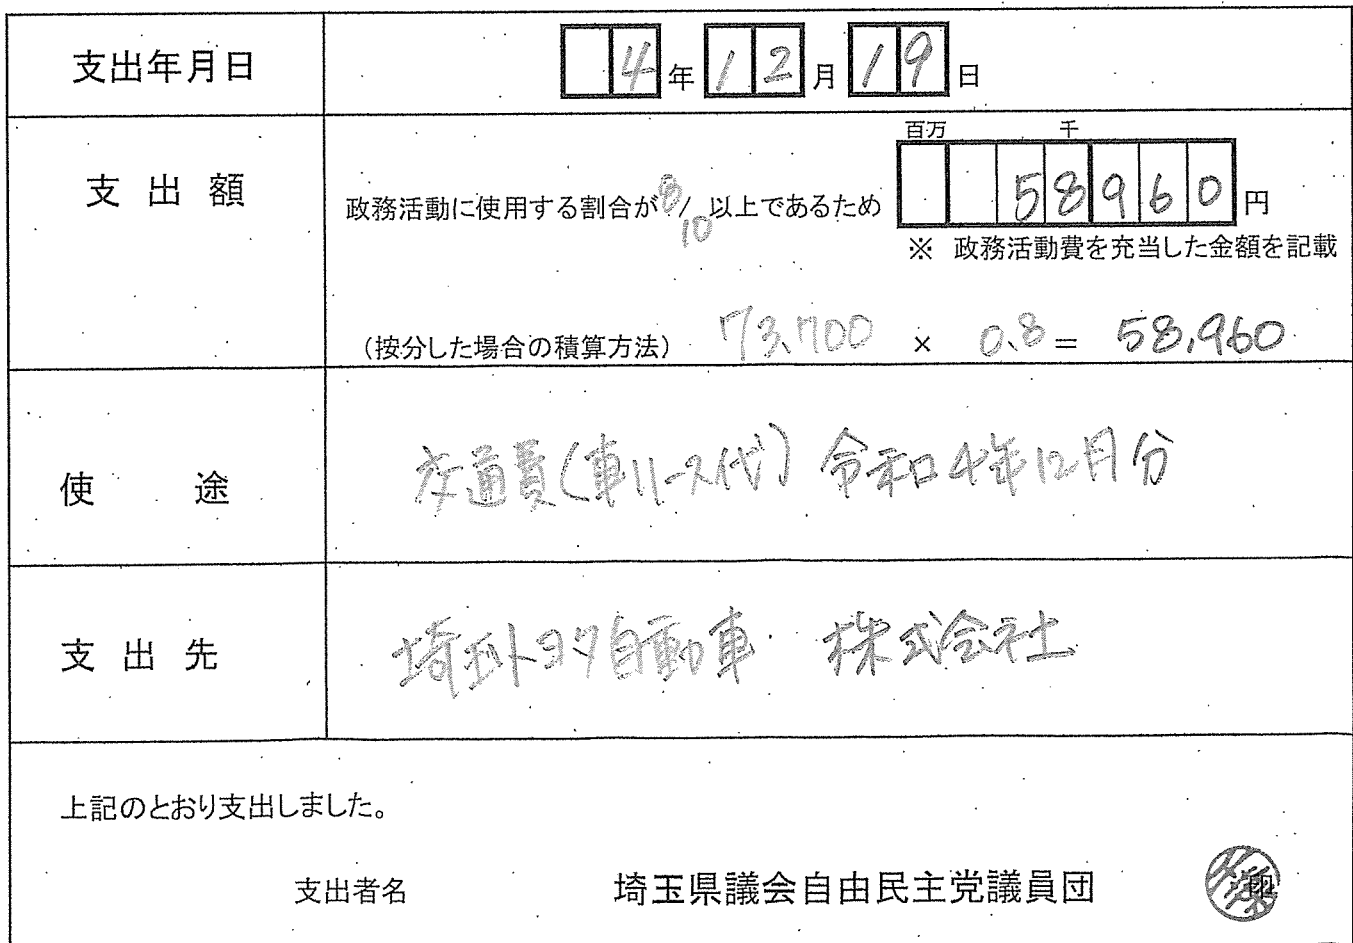 支出年月日 4年12月19日
百万 千
支出額 政務活動に使用する割合が8/10以上であるため 58960円
※ 政務活動費を充当した金額を記載
(按分した場合の積算方法) 73,700 × 0.8 = 58,960
使途 交通費(車リース代)令和4年12月分
支出先 埼玉トヨタ自動車 株式会社
上記のとおり支出しました。
支出者名 埼玉県議会自由民主党議員団 印